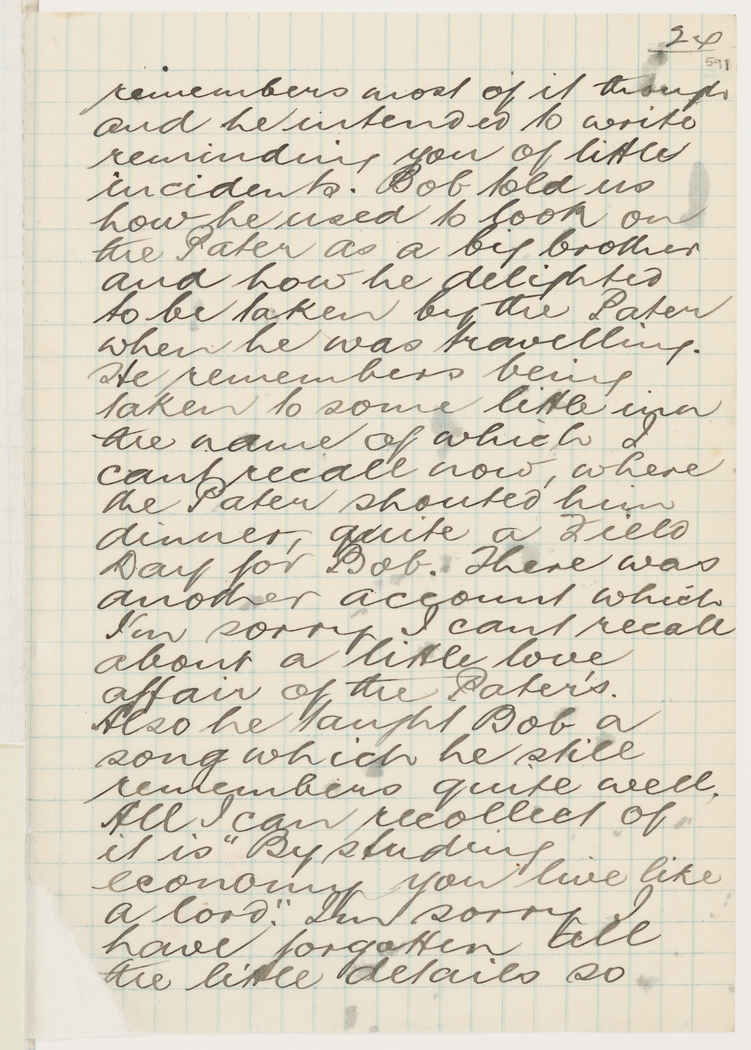 24
591
remembers most of it though
and he intended to write
reminding you of little
incidents. Bob told us
how he used to look on
the Pater as a big brother
and how he delighted
to be taken by the Pater
when he was travelling.
He remembers being
taken to some little inn
the name of which I
cant recall now, where
the Pater shouted him
dinner, quite a Field
Day for Bob. There was
another account which
I'm sorry I cant recall
about a little love
affair of the Pater's.
Also he taught Bob a
song which he still
remembers quite well.
All I can recollect of
it is "By studing
economy you live like
a lord." I'm sorry I
have forgotten all
the little details so